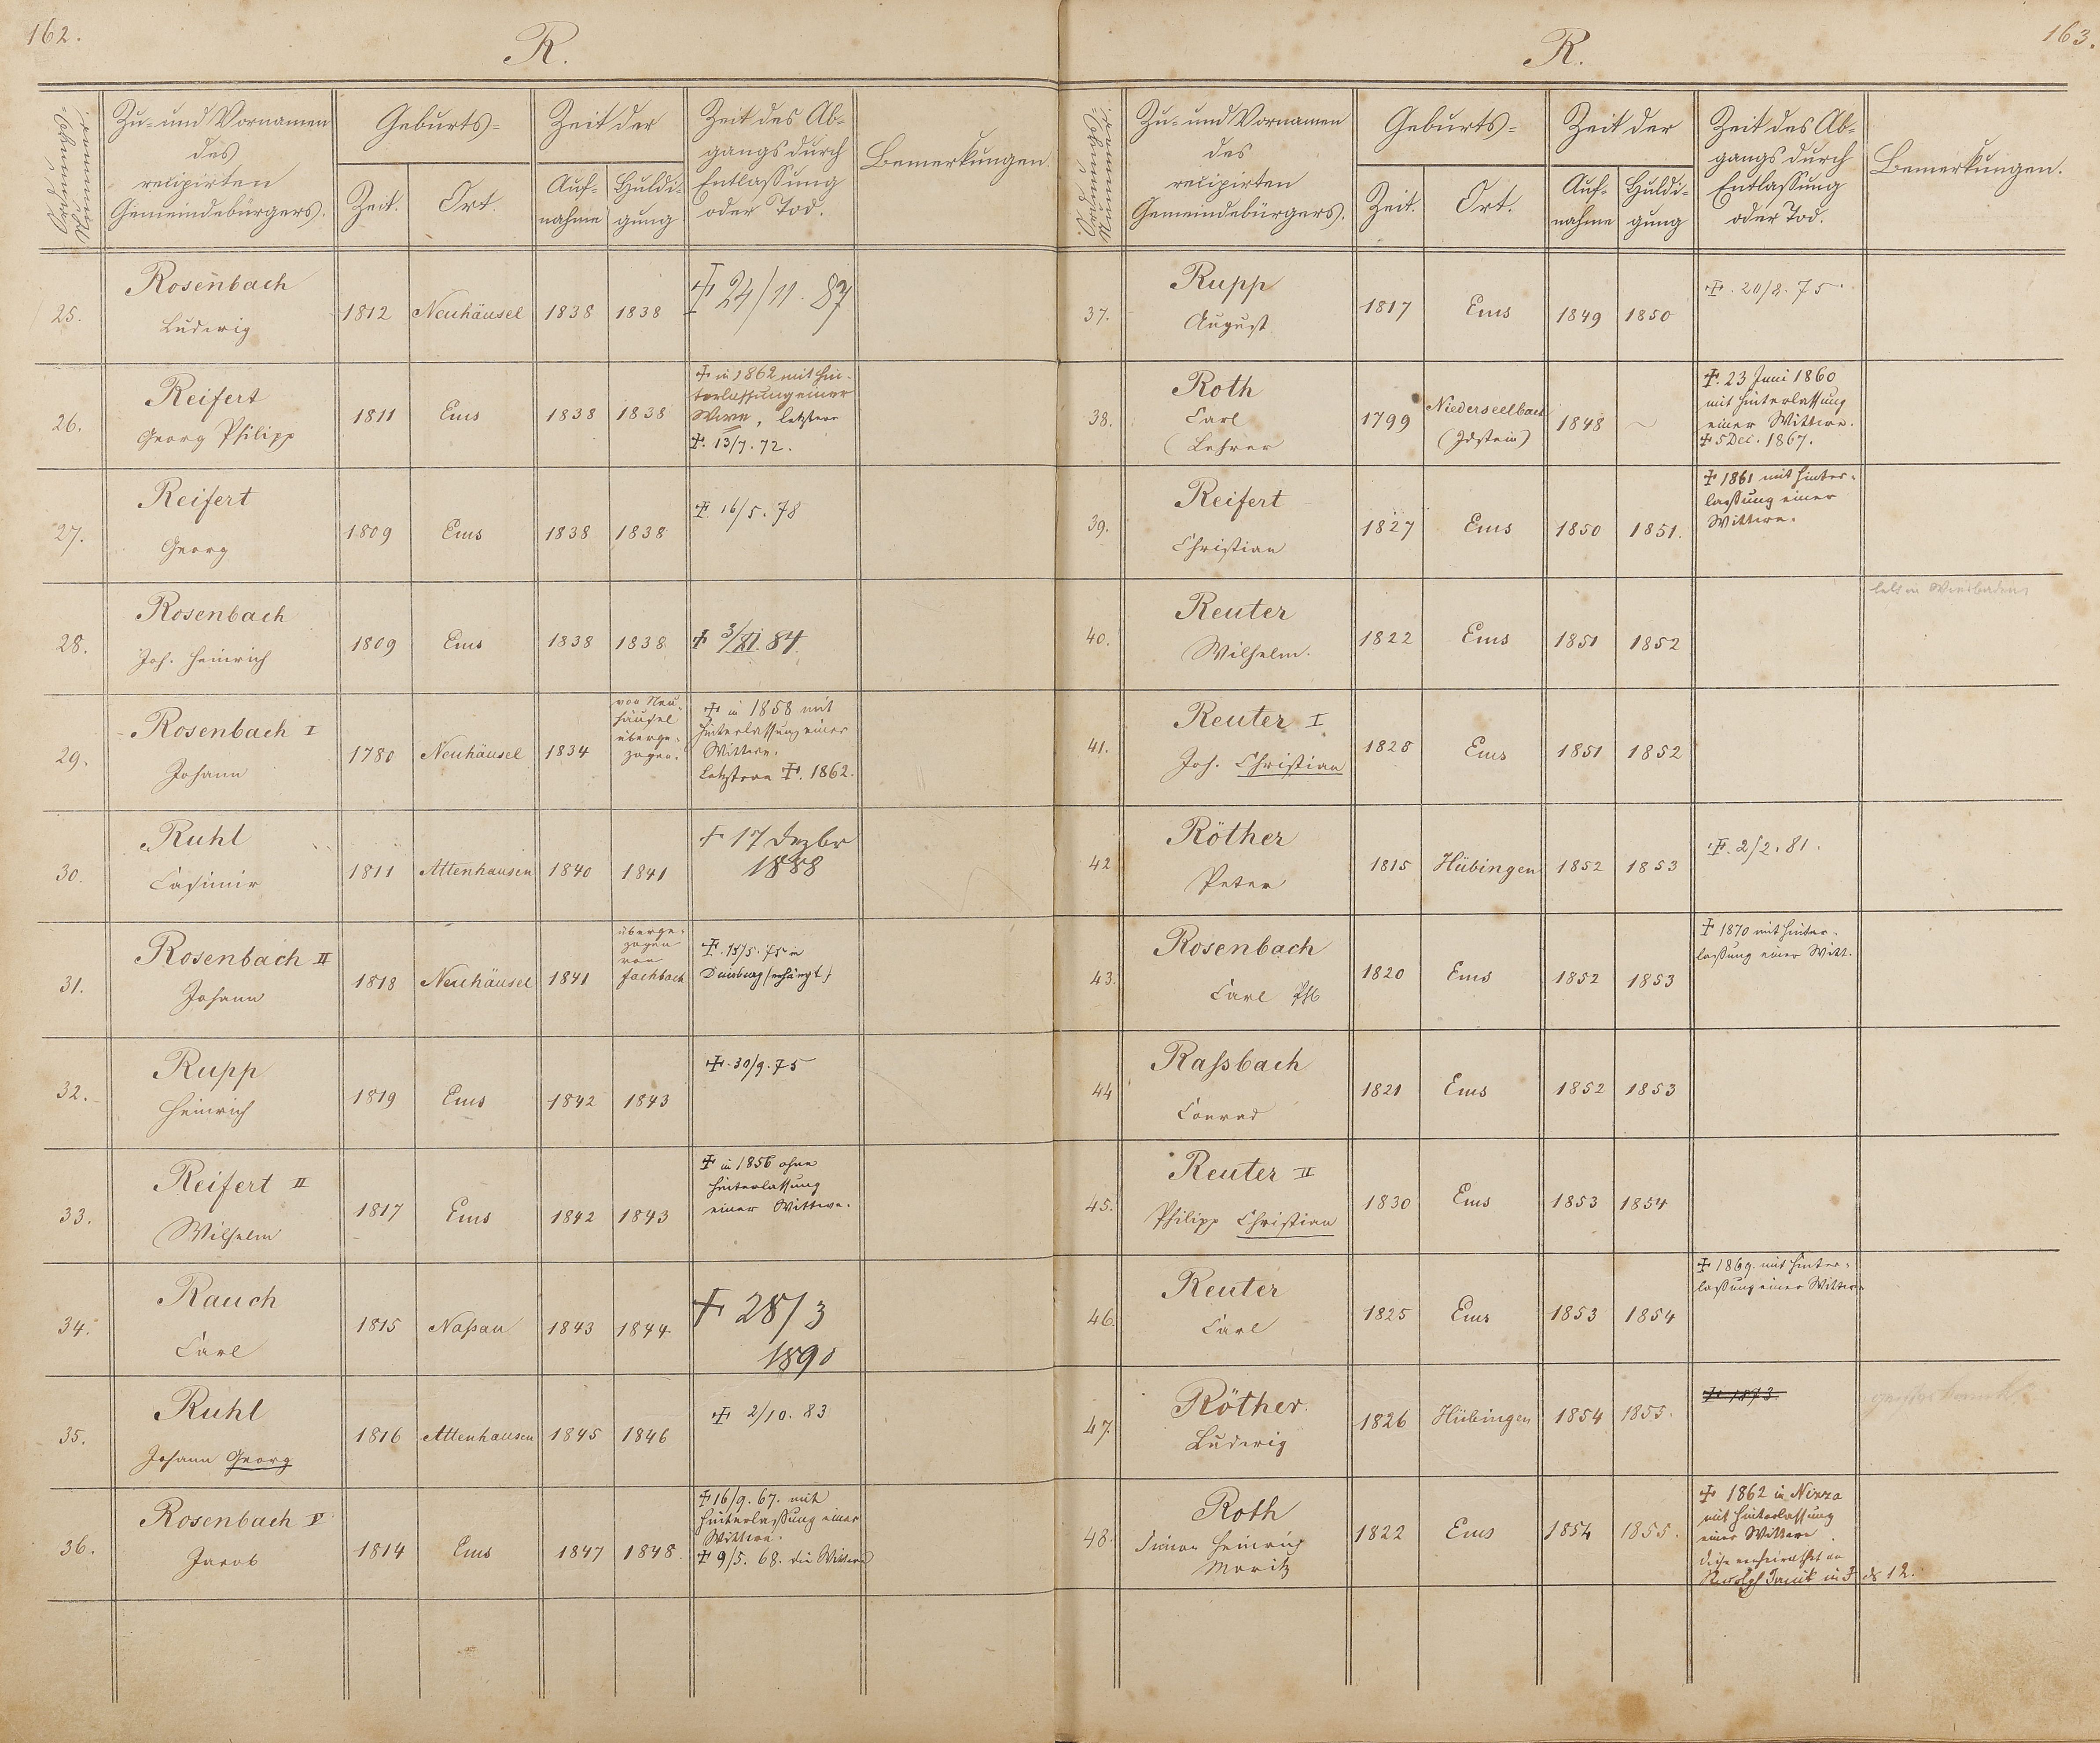 162.
R.
Ordnungs-
Nummer.
Zu- und Vornamen
des
recipirten
Gemeindebürgers.
Geburts-
Zeit.
Ort.
Zeit der
Auf-
nahme
Huldi-
gung
Zeit des Ab-
gangs durch
Entlassung
oder Tod.
Bemerkungen.
25.
Rosenbach
Ludwig
1812
Neuhäusel
1838
1838
‡ 24/11. 87
26.
Reifert
Georg Philipp
1811
Ems
1838
1838
‡ in 1862 mit Hin-
terlassung einer
Wwe, letztere
‡. 13/7. 72.
27.
Reifert
Georg
1809
Ems
1838
1838
‡. 16/5. 78
28.
Rosenbach
Joh. Heinrich
1809
Ems
1838
1838
‡ 3/XI. 84
29.
Rosenbach I
Johann
1780
Neuhäusel
1834
von Neu-
häusel
überge-
zogen.
‡ in 1858 mit
Hinterlassung einer
Wittwe.
Letztere ‡. 1862.
30.
Ruhl
Casimir
1811
Attenhausen
1840
1841
† 17 Dezbr
1888
31.
Rosenbach II
Johann
1818
Neuhäusel
1841
überge-
zogen
von
Fachbach
‡. 15/5. 75 in
Duisburg (erhängt)
32.
Rupp
Heinrich
1819
Ems
1842
1843
‡. 30/9. 75
33.
Reifert II
Wilhelm
1817
Ems
1842
1843
‡ in 1856 ohne
Hinterlassung
einer Wittwe.
34.
Rauch
Carl
1815
Naßau
1843
1844
† 28/3
1890
35.
Ruhl
Johann Georg
1816
Attenhausen
1845
1846
‡ 2/10. 83
36.
Rosenbach V
Jacob
1814
Ems
1847
1848.
‡ 16/9. 67. mit
Hinterlaßung einer
Wittwe.
‡ 9/5. 68. die Wittwe
163.
R.
Ordnungs-
Nummer.
Zu- und Vornamen
des
recipirten
Gemeindebürgers.
Geburts-
Zeit.
Ort.
Zeit der
Auf-
nahme
Huldi-
gung
Zeit des Ab-
gangs durch
Entlassung
oder Tod.
Bemerkungen.
37.
Rupp
August
1817
Ems
1849
1850
‡. 20/8. 75.
38.
Roth
Carl
(Lehrer
1799
Niederseelbach
(Idstein)
1848
~
‡. 23 Juni 1860
mit Hinterlassung
einer Wittwe.
‡ 5 Dec. 1867.
39.
Reifert
Christian
1827
Ems
1850
1851.
‡ 1861 mit Hinter-
laßung einer
Wittwe.
40.
Reuter
Wilhelm.
1822
Ems
1851
1852
lebt in Wiesbaden
41.
Reuter I
Joh. Christian
1828
Ems
1851
1852
42
Röther
Peter
1815
Hübingen
1852
1853
‡. 2/2. 81.
43.
Rosenbach
Carl Phl
1820
Ems
1852
1853
‡ 1870 mit Hinter-
laßung einer Witt.
44
Raßbach
Conrad
1821
Ems
1852
1853
45.
Reuter II
Philipp Christian
1830
Ems
1853
1854
46.
Reuter
Carl
1825
Ems
1853
1854
‡ 1869. mit Hinter-
laßung einer Wittwe
47.
Röther.
Ludwig
1826
Hübingen
1854
1855.
‡ 1873.
48.
Roth
Simon Heinrich
Moritz
1822
Ems
1854
1855.
‡ 1862 in Nizza
mit Hinterlassung
einer Wittwe
diese verheirathet an
Rudolph in J ds 12.